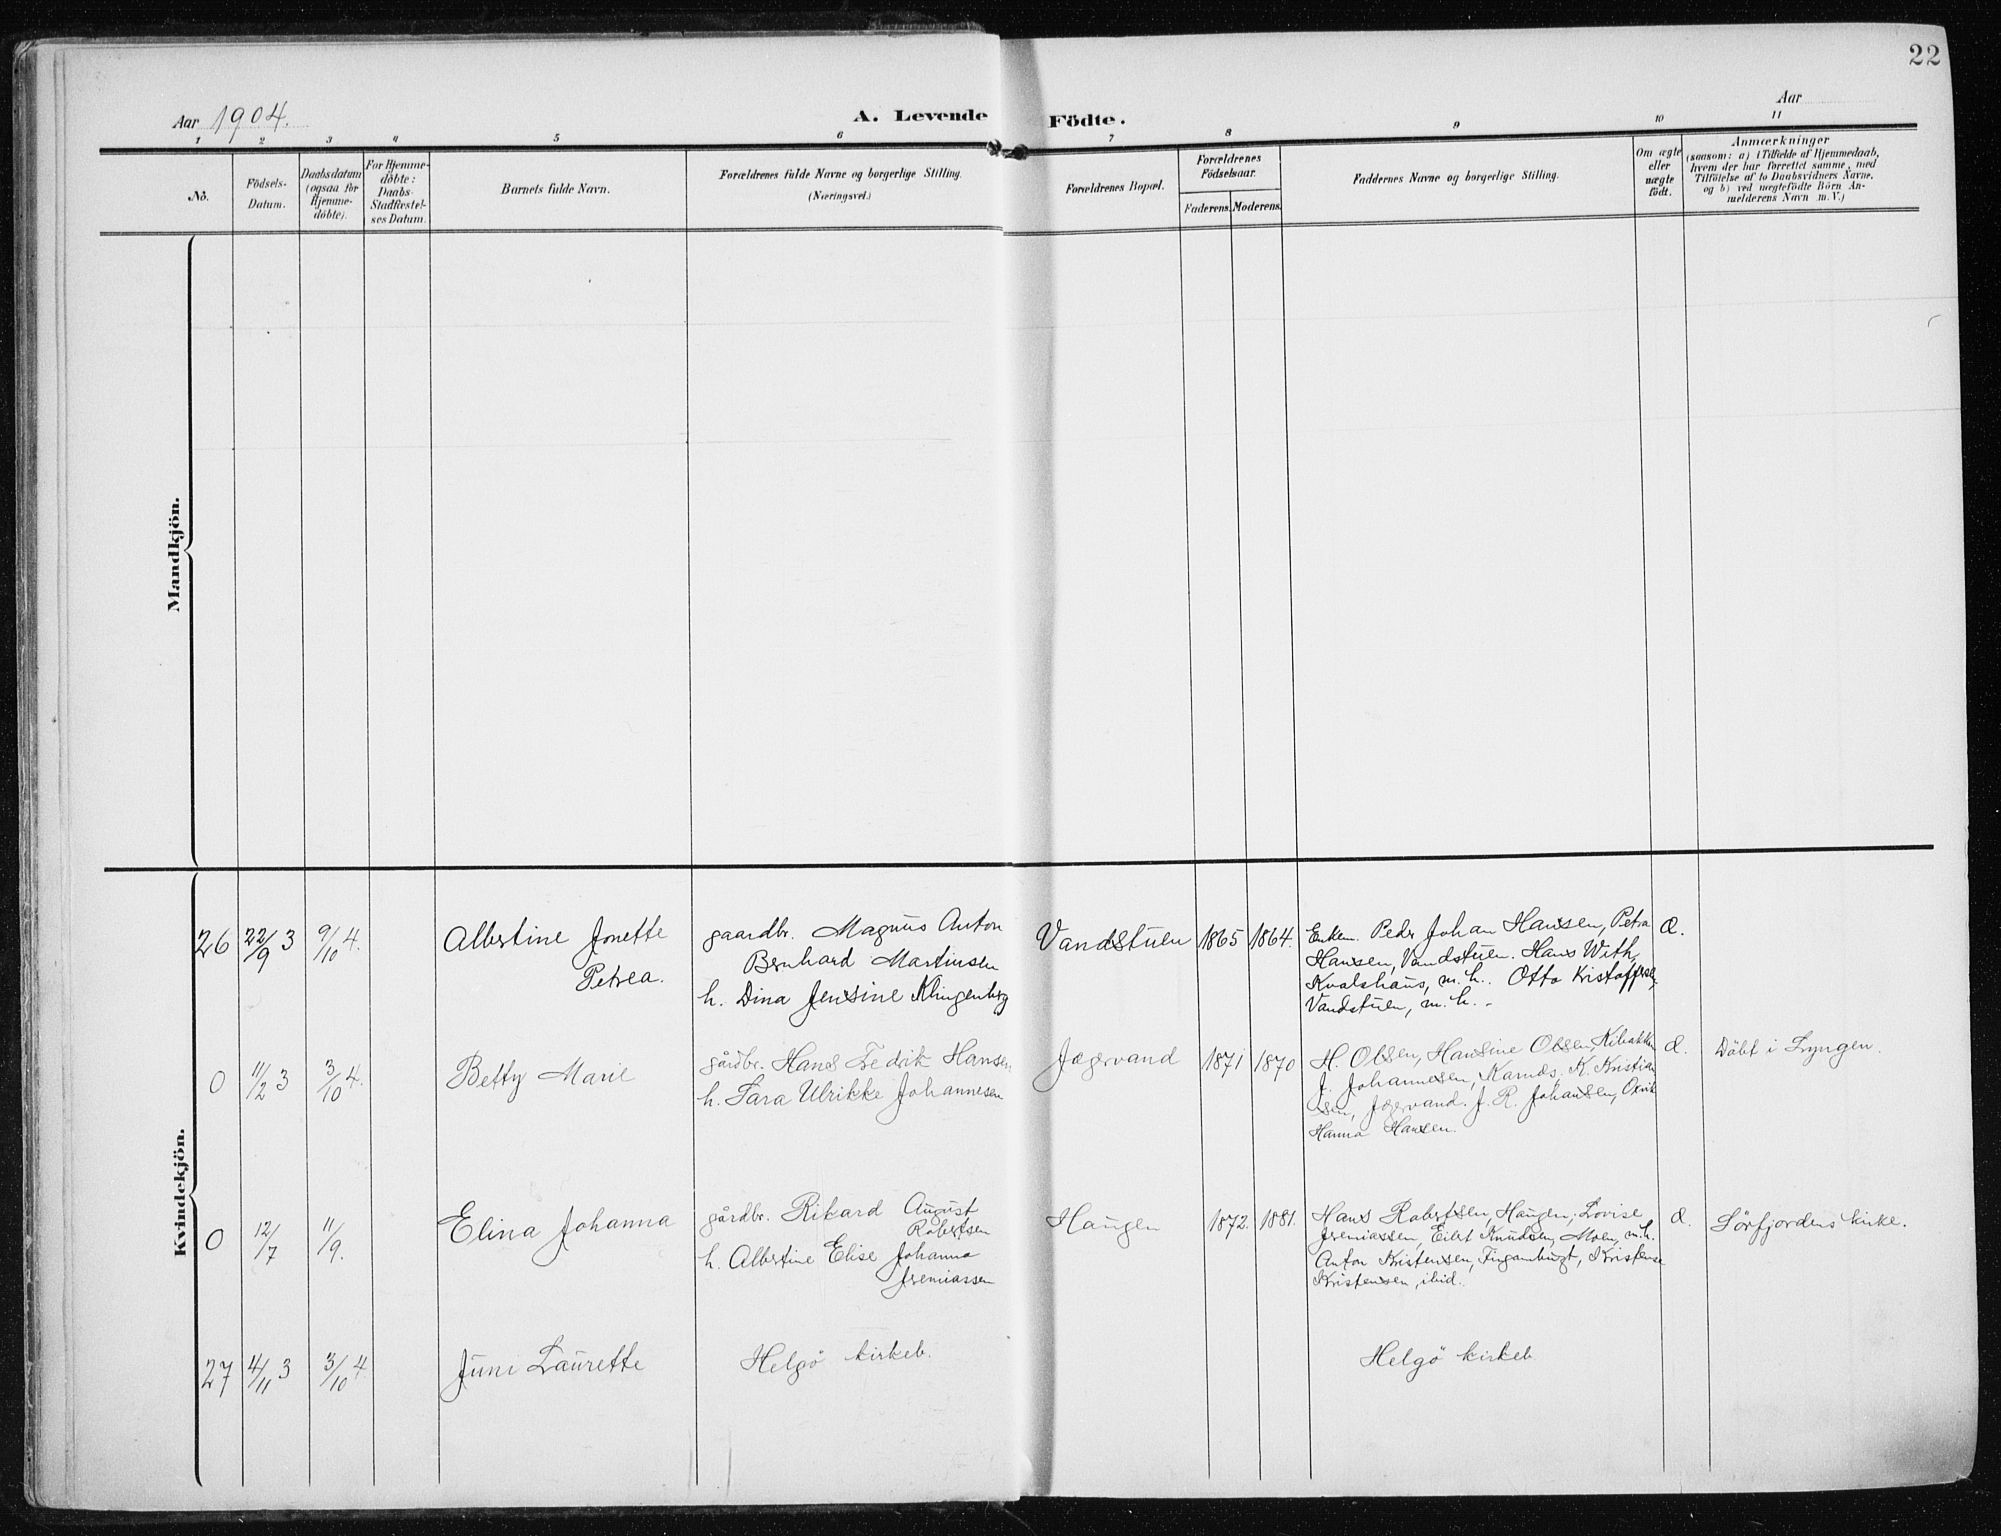 22
Aar 1904.
A. Levende Födte.
Aar
1 2 3 4 5 6 7 8 9 10 11
No.
Födsels-
Datum.
Daabsdatum
(ogsaa for
Hjemme-
døbte).
For Hjemme-
døbte:
Daabs-
Stadfæstel-
ses Datum.
Barnets fulde Navn.
Forældrenes fulde Navne og borgerlige Stilling.
(Næringsvei.)
Forældrenes Bopæl.
Forældrenes
Födselsaar.
Faderens. Moderens.
Faddernes Navne og borgerlige Stilling.
Om ægte
eller
uægte
født.
Anmærkninger
(saasom: a) i Tilfælde af Hjemmedaab,
hvem der har forrettet samme, med
Tilföielse af to Daabsvidners Navne,
og b) ved uægtefödte Börn An-
melderens Navn m. V.)
Mandkjön.
Kvindekjön.
26 22/9 3 9/10 4.
Albertine Jonette
Petrea.
gaardbr. Magnus Anton
Bernhard Martinsen
h. Dina Jensine Klingenberg
Vandstuen 1865 1864.
Enkem. Peder Johan Hansen, Petra
Hansen, Vandstuen. Hans With,
Kvalshaus, m. h.. Otto Kristoffersen,
Vandstuen, m. h. -
Æ.
0 11/2 3 3/10 4.
Betty Marie
gårdbr. Hans Fedrik Hansen
h. Sara Ulrikke Johannesen
Jægervand 1871 1870
H. Olsen, Hansine Olsen,
J. Johannesen, Karnæs. K. Kristian
sen, Jægervand. J. R. Johansen,
Hanna Hansen.
Æ.
Döbt i Lyngen.
0 12/7 11/9.
Elina Johanna
gårdbr. Rikard August
Robertsen
h. Albertine Elise Johanna
Jremiassen
Haugen 1872. 1881.
Hans Robertsen, Haugen, Lovise
Jremiassen, Eilert Knudsen, Moen, m. h.
Anton Kristensen, Kristense
Kristensen, ibid.
Æ.
Sörfjordens kirke.
27 4/11 3 3/10 4
Juni Laurette
Helgö kirkeb.
Helgö kirkeb.